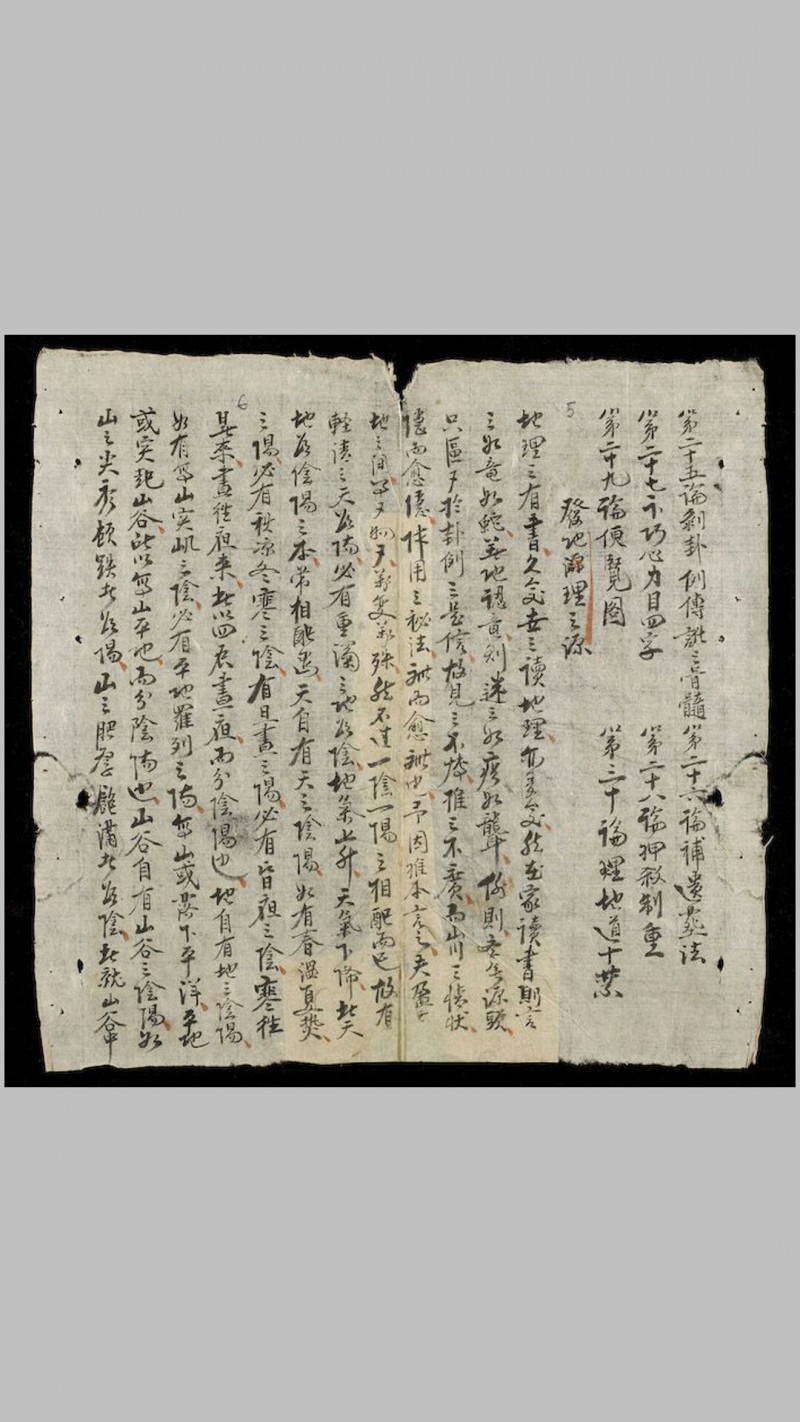 第二十五論剝卦例傳訛之骨髓 第二十六論補遺葬法
第二十七卜巧心力目四字 第二十八論押殺制重
第二十九論便覽圖 第三十論理地道十禁
發地源理之源
5
地理之有書久矣世之讀地理亦多矣然在家讀書則言
之如竜如蛇至地認竟則迷之如痴如聾係則吾失源頭
只區〻於卦例之是信故見之不律推之不廣而山川之情狀
隱而愈隱作用之秘法訛而愈訛也予因推本言之夫盈〻
地之間萬〻物〻萬变萬殊然不过一陰一陽之相配而已故有
輕清之天為陽必有重濁之地為陰地氣上升天氣下降此天
地為陰陽之本常相配也天自有天之陰陽如有春溫夏熱
之陽必有秋凉冬寒之陰有旦晝之陽必有昏夜之陰寒往
6
暑來晝往夜來此以四辰晝夜而分陰陽也地自有地之陰陽
如有高山突屼之陰必有平地羅列之陽高山或落下平洋平地
或突起山谷此以高山平地而分陰陽也山谷自有山谷之陰陽如
山之尖秀頓跌者為陽山之肥厚飽滿者為陰此就山谷中